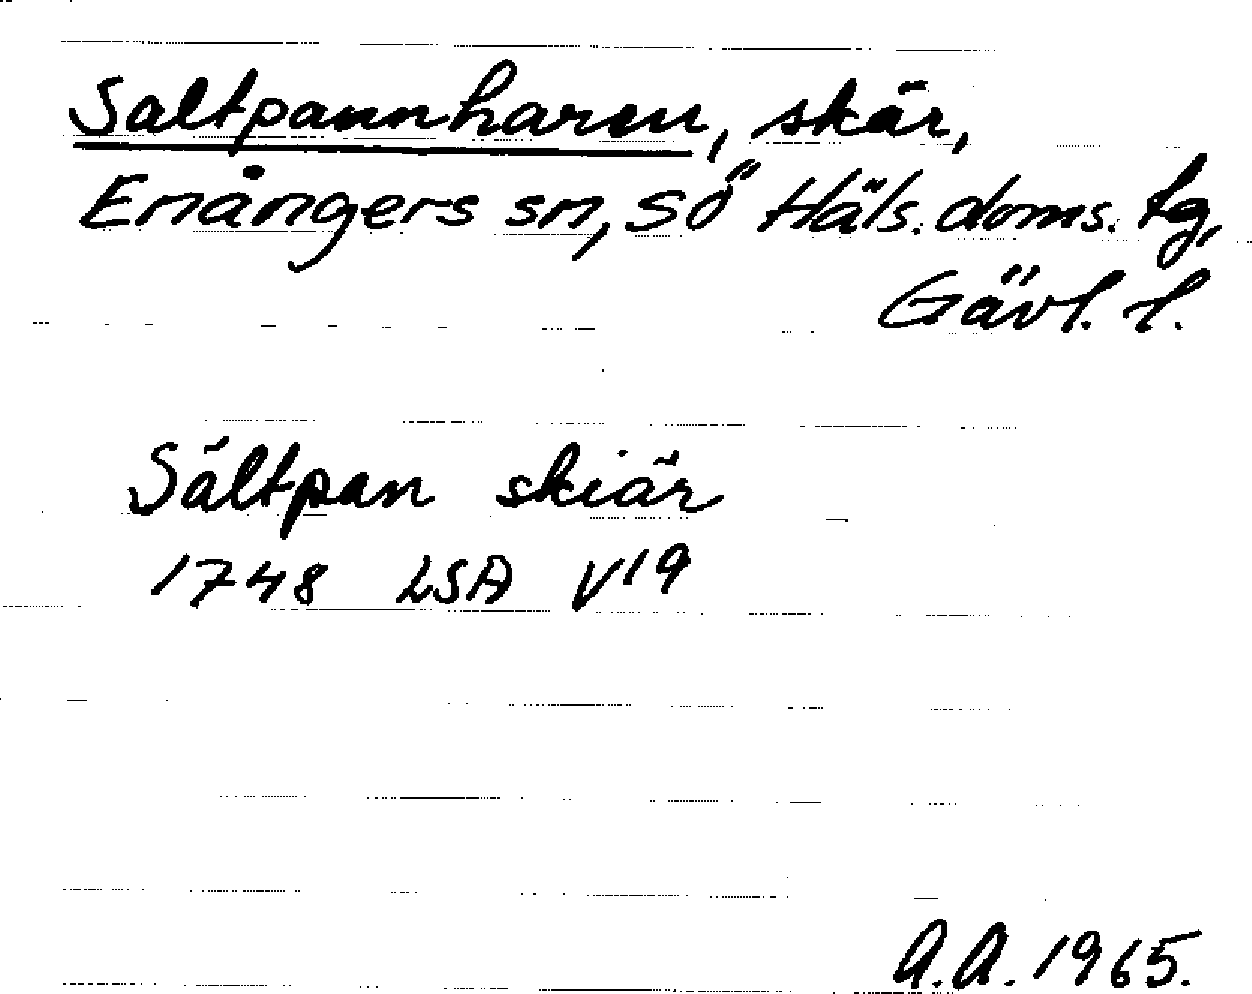 Saltpannharen, skär,
Enångers sn, Sö Häls. doms. tg,
Gävl. l.
Sältpan skiär
1748 LSA V19
A.A. 1965.